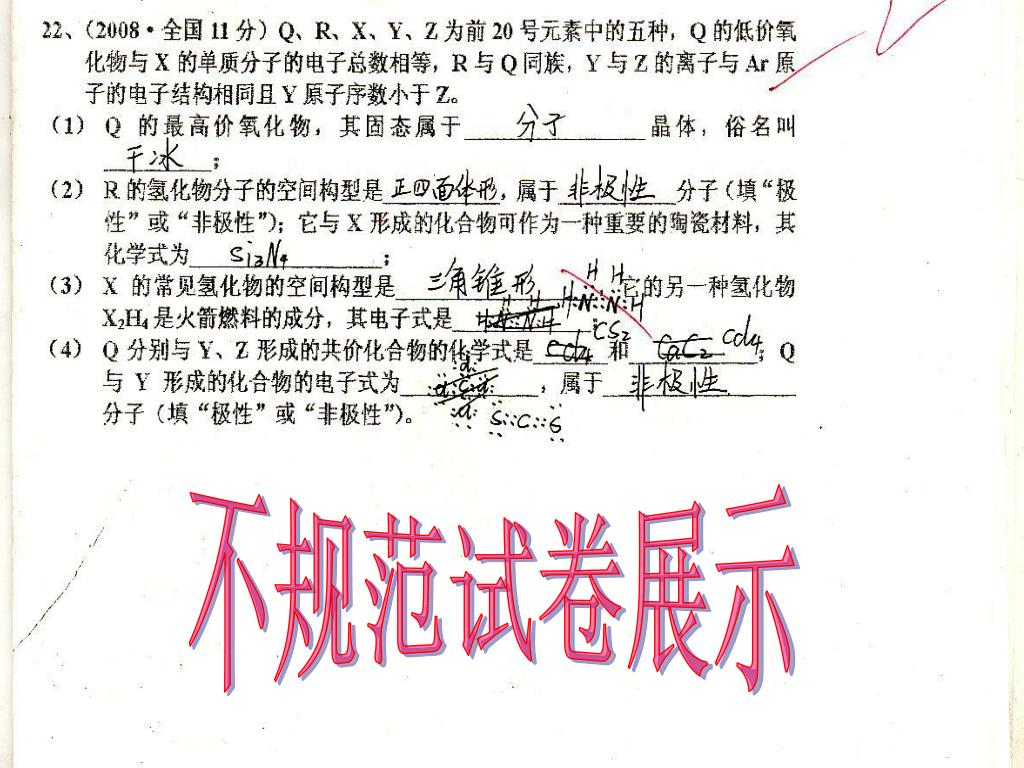 22、(2008·全国11分)Q、R、X、Y、Z为前20号元素中的五种，Q的低价氧
化物与X的单质分子的电子总数相等，R与Q同族，Y与Z的离子与Ar原
子的电子结构相同且Y原子序数小于Z。
(1) Q的最高价氧化物，其固态属于 分子 晶体，俗名叫
干冰；
(2) R的氢化物分子的空间构型是 正四面体形，属于 非极性 分子（填“极
性”或“非极性”）；它与X形成的化合物可作为一种重要的陶瓷材料，其
化学式为 Si3N4；
(3) X的常见氢化物的空间构型是 三角锥形 它的另一种氢化物
H H
H:N::N:H
X₂H₄是火箭燃料的成分，其电子式是
CS2 CCl4
(4) Q分别与Y、Z形成的共价化合物的化学式是 CCl4 和 CaC2；Q
与Y形成的化合物的电子式为 ，属于 非极性
分子（填“极性”或“非极性”）。
S::C::S
不规范试卷展示